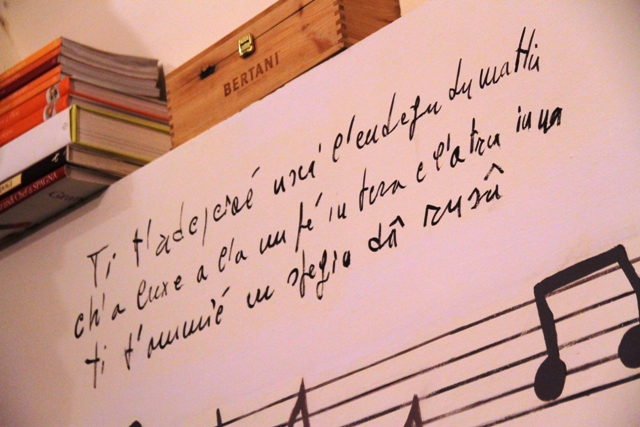 SPAGNA
BERTANI
Ti t'adesciöé nsci' l'endegu du mattin
ch'a luxe a l'a un pé in tera e l'atru in ma
ti t'ammié un spegiu dâ rusâ